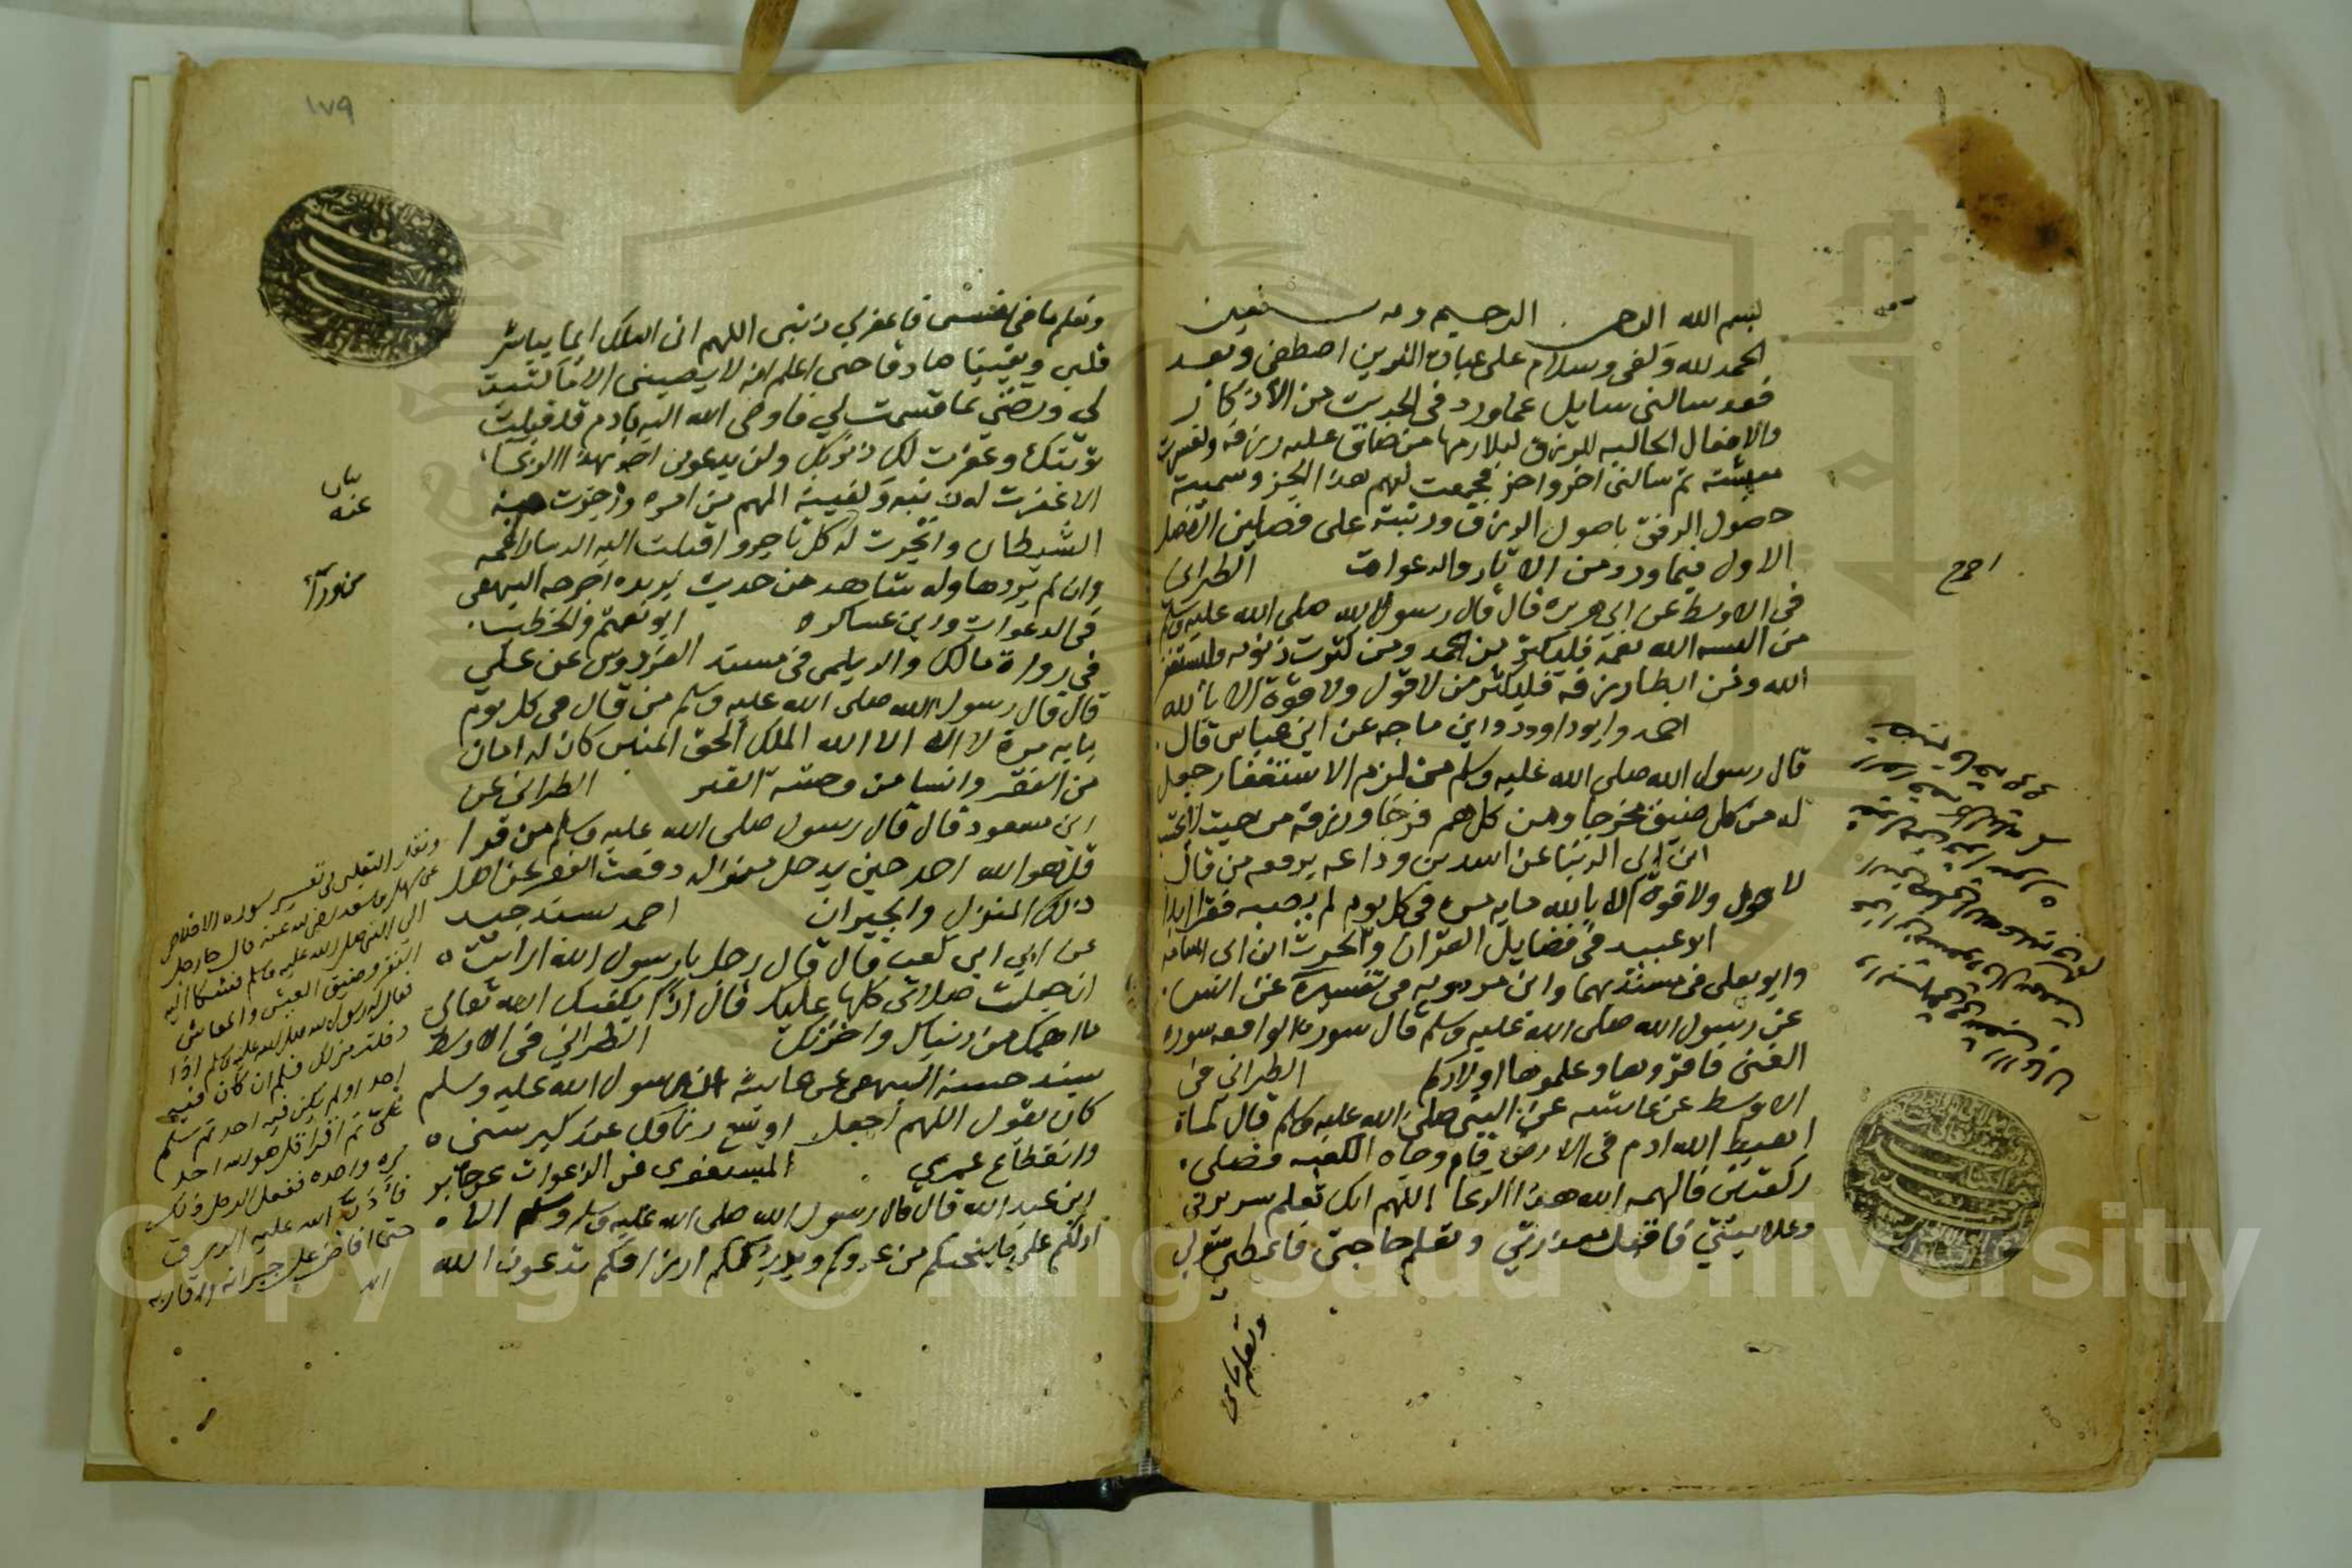 بسم الله الرحمن الرحيم وبه نستعين
الحمد لله وكفى وسلام على عباده الذين اصطفى وبعد
فقد سالنى سايل عما ورد فى الحديث من الأذكار
والافعال الجالبه للرزق ليلازمها من ضاق عليه رزقه وتعسرت
معيشته ثم سالنى اخر واخر فجمعت لهم هذا الجزء وسميته
حصول الرفق باصول الرزق ورتبته على فصلين الفصل
الاول فيما ورد من الاثار والدعوات الطبرانى
فى الاوسط عن ابى هريره قال قال رسول الله صلى الله عليه وسلم
من البسه الله نعمة فليكثر من الحمد ومن كثرت ذنوبه فليستغفر
الله ومن ابطا رزقه فليكثر من لا قول ولا قوة الا بالله
احمد وابو داوود وابن ماجه عن ابن عباس قال
قال رسول الله صلى الله عليه وسلم من لزم الاستغفار جعل
له من كل ضيق مخرجا ومن كل هم فرجا ورزقه من حيث لا يحتسب
ابن ابى الدنيا عن اسد بن وداعه يرفعه من قال
لا حول ولا قوة الا بالله مايه مره فى كل يوم لم يصبه فقر ابدا
ابو عبيد فى فضايل القران والحرث ابن ابى اسامه
وابو يعلى فى مسنديهما وابن مردويه فى تفسيره عن انس
عن رسول الله صلى الله عليه وسلم قال سورة الواقعه سورة
الغنى فاقرؤوها وعلموها اولادكم الطبرانى فى
الاوسط عن عايشه عن النبى صلى الله عليه وسلم قال لما
اهبط الله ادم فى الارض قام وجاه الكعبه فصلى
ركعتين فالهمه الله هذا الدعا اللهم انك تعلم سريرتى
وعلانيتي فاقبل معذرتي وتعلم حاجتى فاعطني سؤلي
وتعلم ما فى
احمد
١٧٩
وتعلم ما فى نفسى فاغفر لي ذنبى اللهم انى اسالك ايمانا يباشر
قلبى ويقينا صادقا حتى اعلم انه لا يصيبنى الا ما كتبت
لي ورضني بما قسمت لي فاوحى الله اليه يا ادم قد قبلت
توبتك وغفرت لك ذنوبك ولن يدعونى احد بهذا الدعا
الا غفرت له ذنبه وكفيته المهم من امره وزجرت عنه
الشيطان واتجرت له كل تاجر واقبلت اليه الدنيا راغمه
وان لم يردها وله شاهد من حديث بريده اخرجه البيهقى
فى الدعوات وابن عساكر ابو نعيم والخطيب
فى رواة مالك والديلمى فى مسند الفردوس عن علي
قال قال رسول الله صلى الله عليه وسلم من قال فى كل يوم
مايه مرة لا اله الا الله الملك الحق المبين كان له امان
من الفقر وانسا من وحشة القبر الطبرانى عن
ابن مسعود قال قال رسول صلى الله عليه وسلم من قرا
قل هو الله احد حين يدخل منزله دفعت الفقر عن اهل
ذلك المنزل والجيران احمد بسند جيد
عن ابي ابن كعب قال قال رجل يا رسول الله ارايت
ان جعلت صلاتى كلها عليك قال اذًا يكفيك الله تعالى
ما اهمك من دنياك واخرتك الطبراني فى الاوسط
بسند حسن البيهقى عن عايشه ان رسول الله عليه وسلم
كان يقول اللهم اجعل اوسع رزقك عند كبر سنى
وانقطاع عمري المستغفرى فى الدعوات عن جابر
ابن عبد الله قال قال رسول الله صلى الله عليه وسلم الا
ادلكم على ما ينجيكم من عدوكم ويدر لكم ارزاقكم تدعون الله
بيان
عنه
ونقل الثعلبى فى تفسير سورة الاخلاص
عن سهل بن سعد رضى الله عنه قال جا رجل
الى النبى صلى الله عليه وسلم فشكا اليه
الفقر وضيق العيش والمعاش
فقال له رسول الله صلى الله عليه وسلم اذا
دخلت منزلك فسلم ان كان فيه
احد او لم يكن فيه احد ثم سلم
علي ثم اقرا قل هو الله احد
مره واحده ففعل الرجل ذلك
فأدر الله عليه الرزق
حتى افاض على جيرانه واقاربه